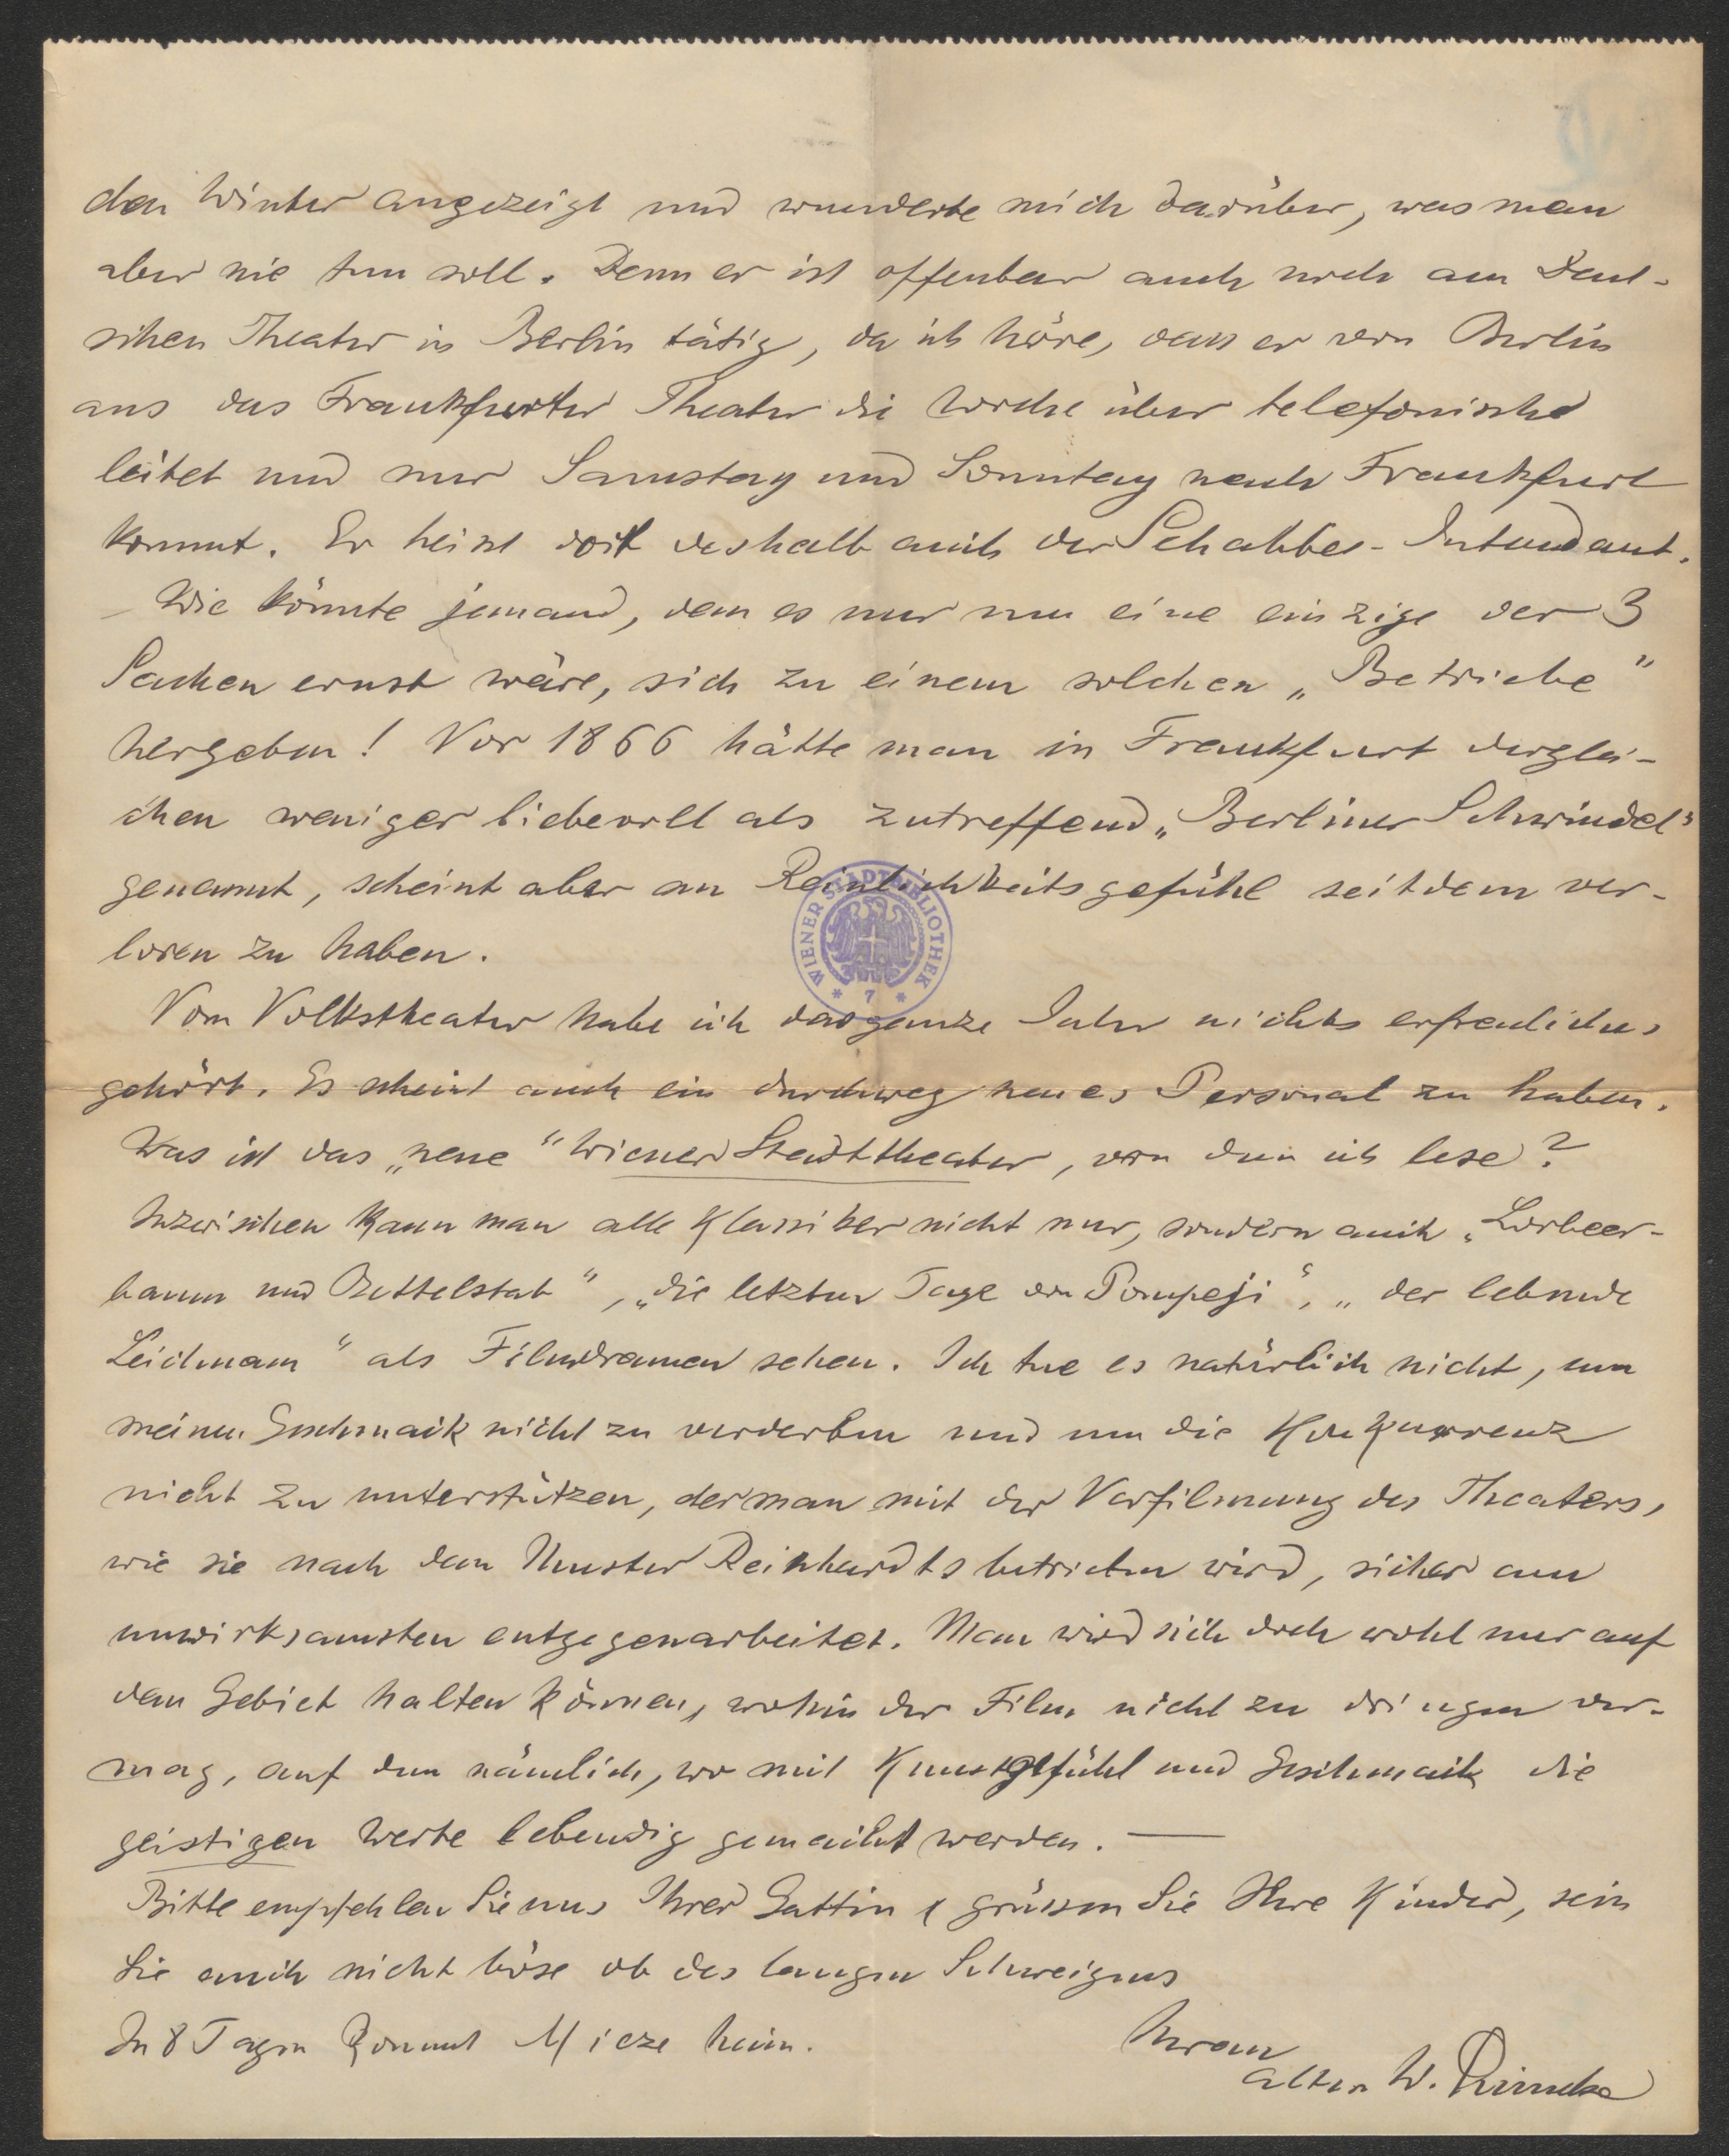 den Winter angezeigt und wunderte mich darüber, was man
aber nie tun soll. Denn er ist offenbar auch noch am Deut-
schen Theater in Berlin tätig, da ich höre, dass er von Berlin
aus das Frankfurter Theater die Woche über telefonisch
leitet und nur Samstag und Sonntag nach Frankfurt
kommt. Er heisst dort deshalb auch der Schabbes-Intendant.
Wie könnte jemand, dem es nur um eine einzige der 3
Sachen ernst wäre, sich zu einem solchen „Betriebe"
hergeben! Vor 1866 hätte man in Frankfurt derglei-
chen weniger liebevoll als zutreffend „Berliner Schwindel"
genannt, scheint aber an Reinlichkeitsgefühl seitdem ver-
loren zu haben.
WIENER STADTBIBLIOTHEK * 7 *
Vom Volkstheater habe ich das ganze Jahr nichts erfreuliches
gehört. Es scheint auch ein durchweg neues Personal zu haben.
Was ist das „neue" Wiener Stadttheater, von dem ich lese?
Inzwischen kann man alle Klassiker nicht nur, sondern auch „Lorbeer-
baum und Bettelstab", „die letzten Tage von Pompeji", „der lebende
Leichnam" als Filmdramen sehen. Ich tue es natürlich nicht, um
meinen Geschmack nicht zu verderben und um die Konkurrenz
nicht zu unterstützen, der man mit der Verfilmung des Theaters,
wie sie nach dem Muster Reinhardts betrieben wird, sicher am
unwirksamsten entgegenarbeitet. Man wird sich doch wohl nur auf
dem Gebiet halten können, wohin der Film nicht zu dringen ver-
mag, auf dem nämlich, wo mit Kunstgefühl und Geschmack die
geistigen Werte lebendig gemacht werden. —
Bitte empfehlen Sie uns Ihrer Gattin & grüssen Sie Ihre Kinder, sein
Sie auch nicht böse ob des langen Schweigens
In 8 Tagen kommt Mieze heim. Ihrem
alten W.